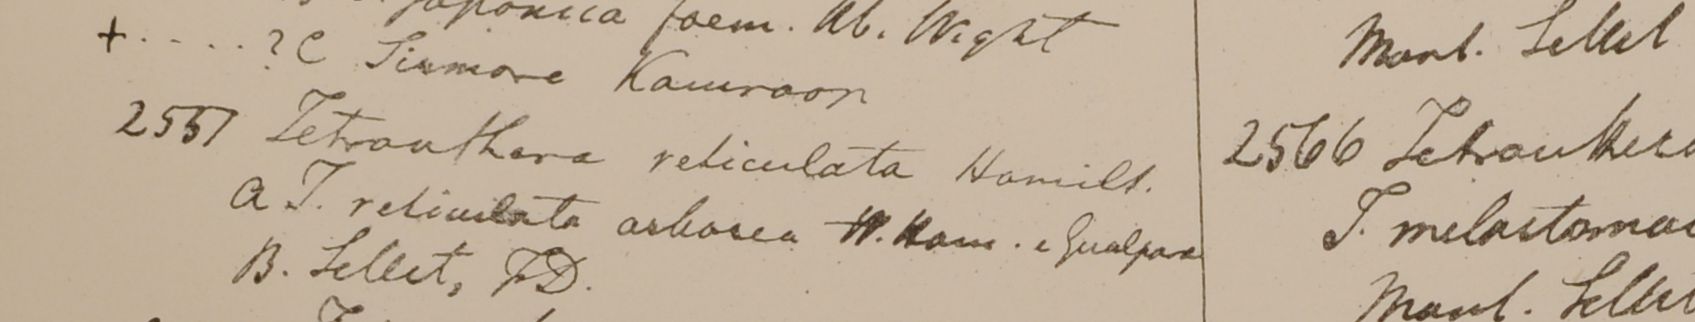 japonica foem. Ab. Wight
+ . - . . . ? C Sirmore Kamraon
2557 Tetranthera reticulata Hamilt.
a T. reticulata arborea H. Ham. e Gualpara
B. Sillet, F.D.
Mont. Sillet
2566 Tetranthera
T. melastomac
Mont. Sillet